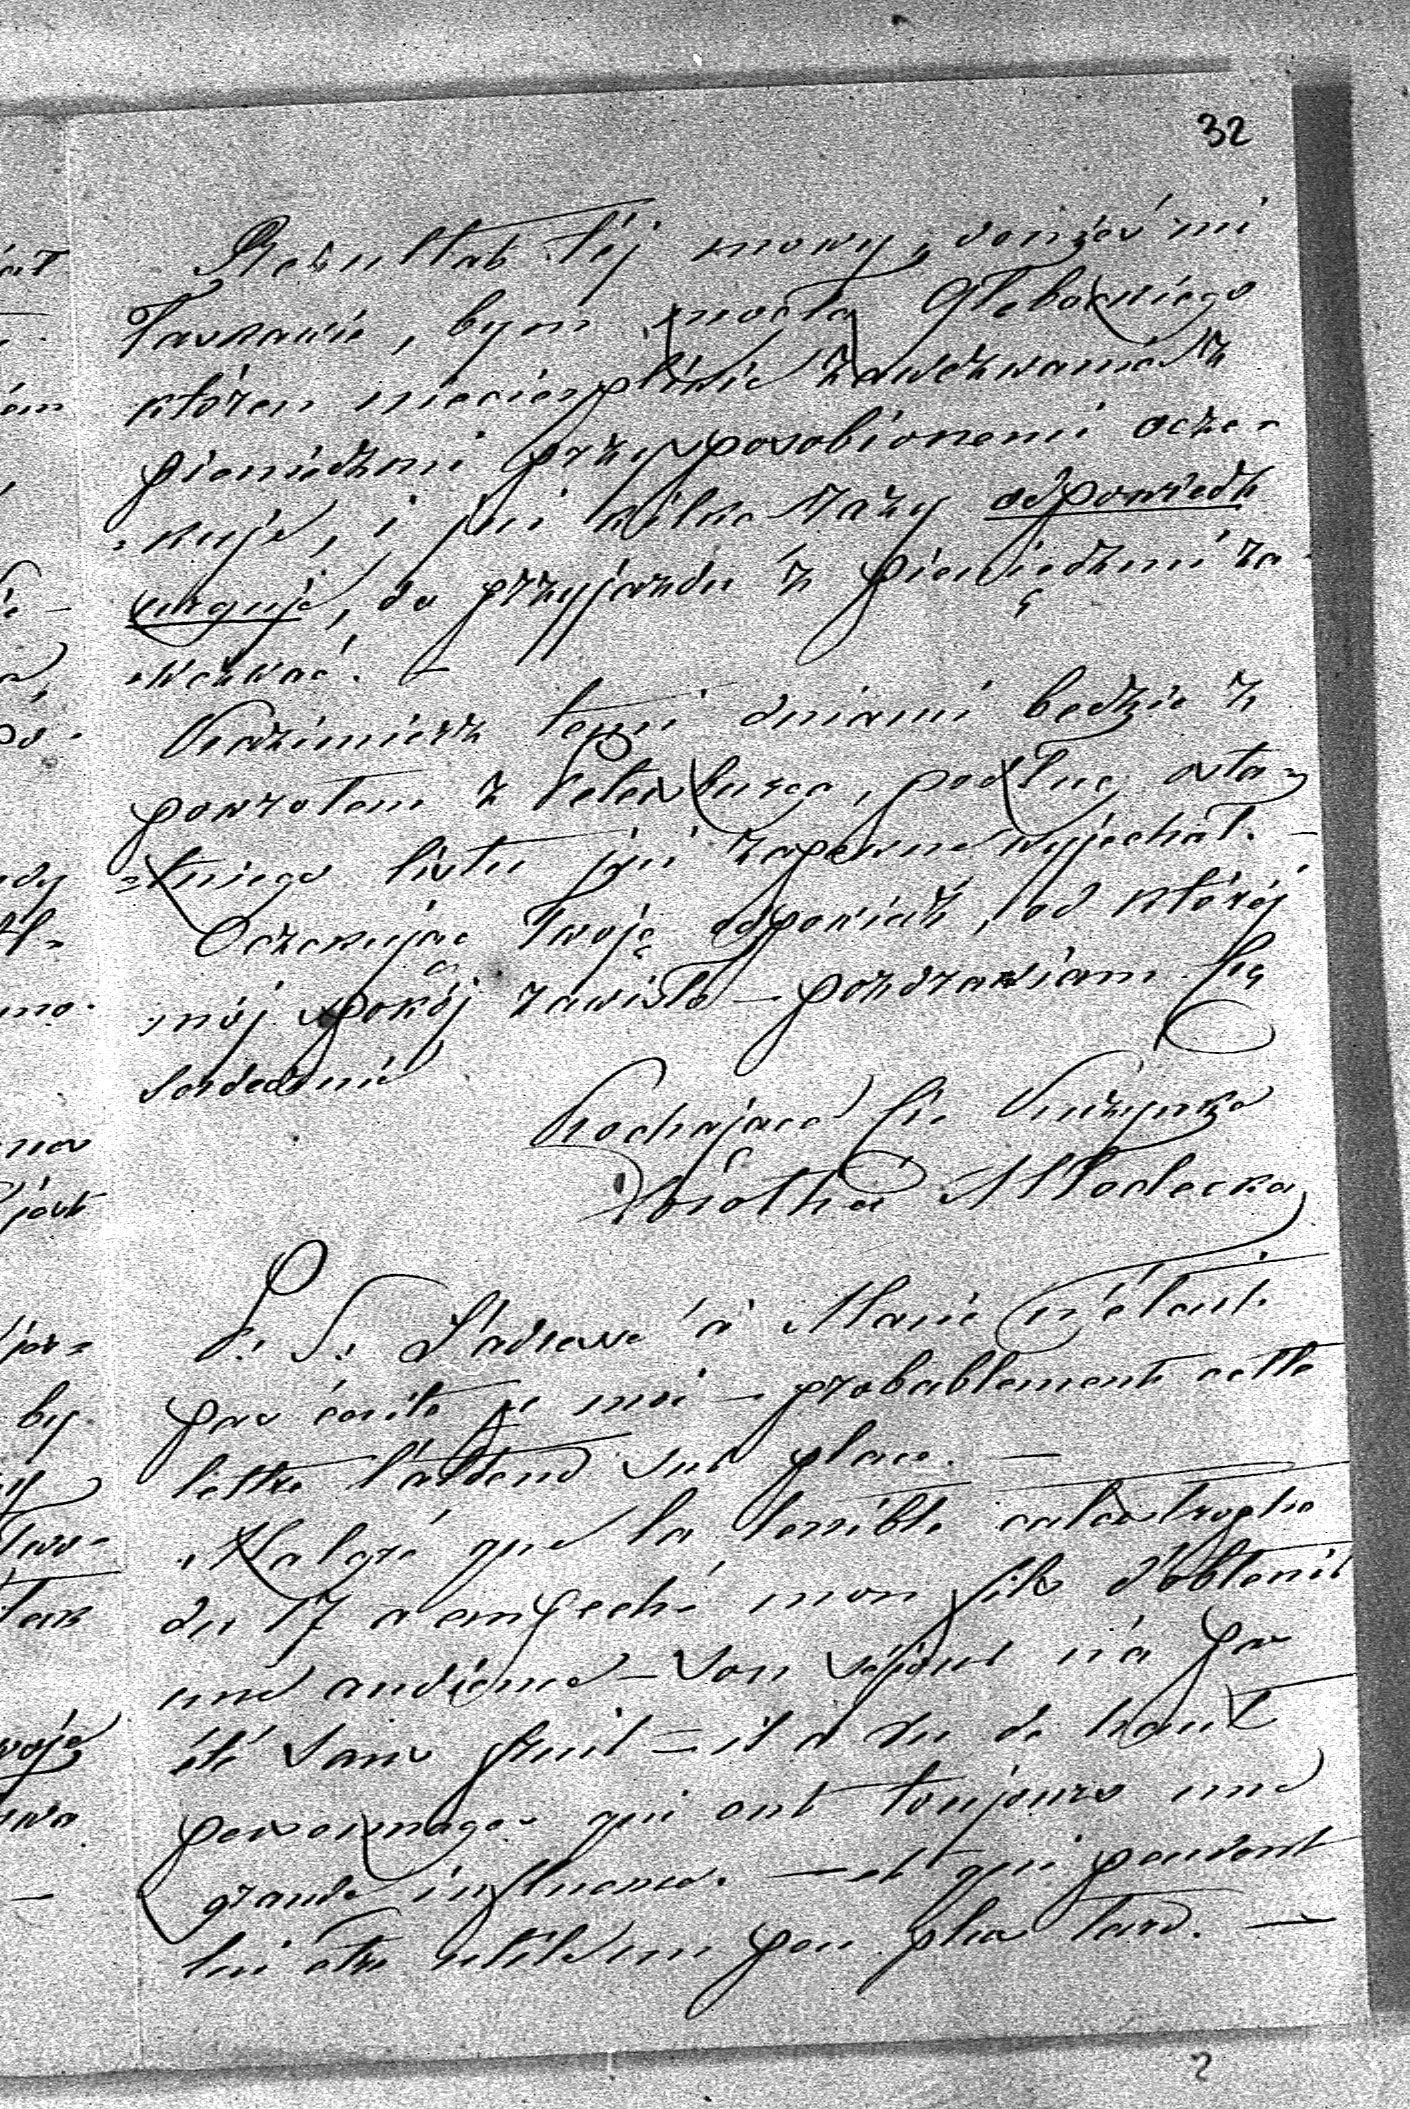 32
Rezultat téj mowy, donieś mi
łaskawie, bym mogła Głębockiego
któren niecierpliwie zawezwania z
pieniędzmi przysposobionemi ocze-
-kuje, i już kilka razy odpowiedz
urguje, do przyjazdu z pieniędzmi za-
-wezwać. —
Kazimierz temi dniami będzie z
powrotem z Petersburga, podług osta-
=tniego listu już zapewne wyjechał. —
Oczekując Twoję odpowiedź, od któréj
mój spokój zawisło — pozdrawiam Cię
serdecznie
Kochająca Cię Kuzynka
Młodecka
P. S. L'adresse à Marie n'étant
pas écrite pr moi — probablement cette
lettre l'attend sur place. —
Malgré que la terrible catastrophe
du 17 a empeché mon fils d'obtenir
une audience — son séjour n'a pas
été sans fruit — il a vu de haut
personnages qui ont toujours une
grande influence. — et qui peuvent
lui être utile un peu plus tard. —
2